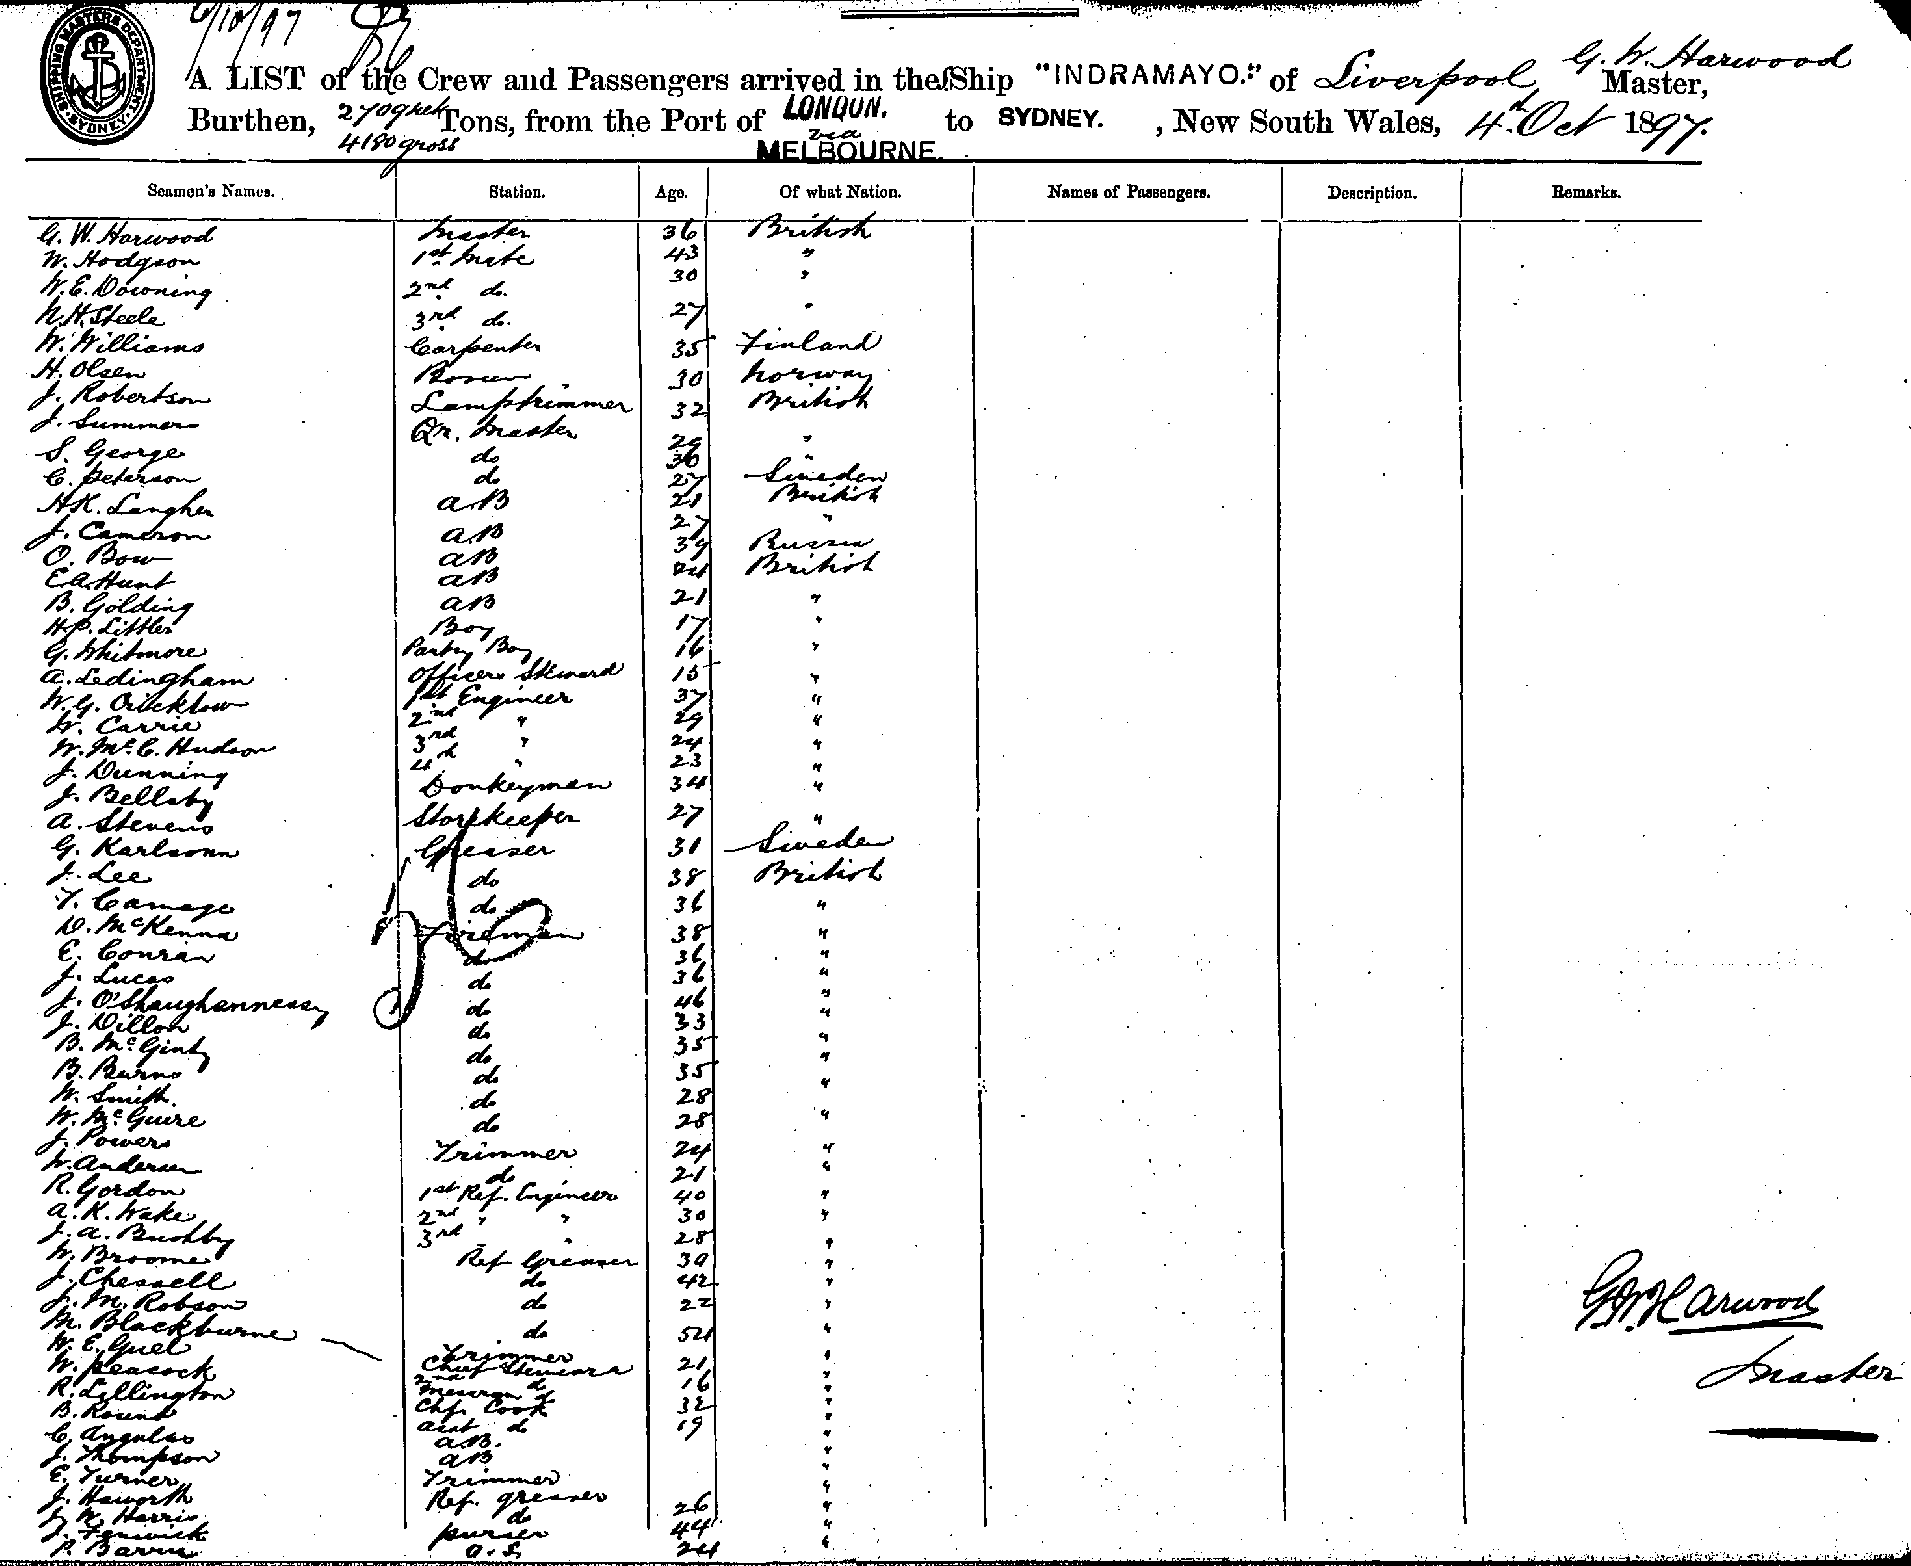 6/10/97
SHIPPING MASTERS DEPARTMENT. SYDNEY.
A LIST of the Crew and Passengers arrived in the Ship "INDRAMAYO." of Liverpool, G. W. Harwood Master,
Burthen, 2709 nett 4180 gross Tons, from the Port of LONDON. via MELBOURNE. to SYDNEY. , New South Wales, 4th Oct 1897.
Seamen's Names. Station. Age. Of what Nation. Names of Passengers. Description. Remarks.
G. W. Harwood Master 36 British
W. Hodgson 1st Mate 43 "
W. E. Downing 2nd do. 30 "
N. H. Steele 3rd do. 27 "
W. Williams Carpenter 35 Finland
H. Olsen Bosun 30 Norway
J. Robertson Lamptrimmer 32 British
J. Summers Qr. Master 29 "
S. George do 36 "
C. Peterson do 27 Sweden
H.K. AB 21 British
J. Cameron AB 27 "
O. Bow AB 39 Russia
E.A. Hunt AB 24 British
B. Golding AB 21 "
H.P. Littler Boy 17 "
G. Whitmore Pantry Boy 16 "
A. Ledingham Officers Steward 15 "
W. G. 1st Engineer 37 "
W. Carrie 2nd " 29 "
W. McC. Hudson 3rd " 24 "
J. Dunning 4th " 23 "
J. Bellaby Donkeyman 34 "
A. Stevens Storekeeper 27 "
G. Karlsonn Greaser 31 Sweden
J. Lee do 38 British
T. Camage do 36 "
D. McKenna Fireman 38 "
E. Conran do 36 "
J. Lucas do 36 "
J. O'Shaughannessy do 46 "
J. Dillon do 33 "
B. McGinty do 35 "
B. Burns do 35 "
W. Smith. do 28 "
W. McGuire do 28 "
J. Powers Trimmer 24 "
W. Andersen do 21 "
R. Gordon 1st Ref. Engineer 40 "
A. K. Wake 2nd " " 30 "
J. A. Bushby 3rd " 28 "
W. Broome Ref Greaser 39 "
J. Chessell do 42 "
J. M. Robson do 22 "
M. Blackburne do 54 "
W. E. Guel Trimmer 21 "
W. Peacock Chief Steward 16 "
R. Lillington 2nd do 32 "
B. Round Messroom do 19 "
C. Angulas Chf. Cook "
J. Thompson Asst do "
E. Turner AB. "
J. Haworth AB "
J. W. Harris Trimmer 26 "
J. Fenwick Ref. greaser 44 "
P. do 24 "
purser
O.S.
G W Harwood
Master